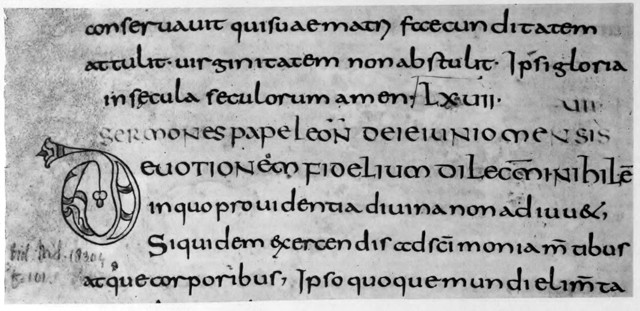 conseruauit qui suae matri foecunditatem
attulit· uirginitatem non abstulit· Ipsi gloria
in secula seculorum amen; LX·UII·
UII·
SERMONES PAPE LEON̄ DE IEIUNIO MENSIS
DEUOTIONEM FIDELIUM DILECT̄M̄I NIHIL Ē
in quo prouidentia diuina non adiuu&;
Siquidem &ercendis ad sc̄imoniam m̄tibus
atque corporibus; Ipso quoque mundi elim̄ta